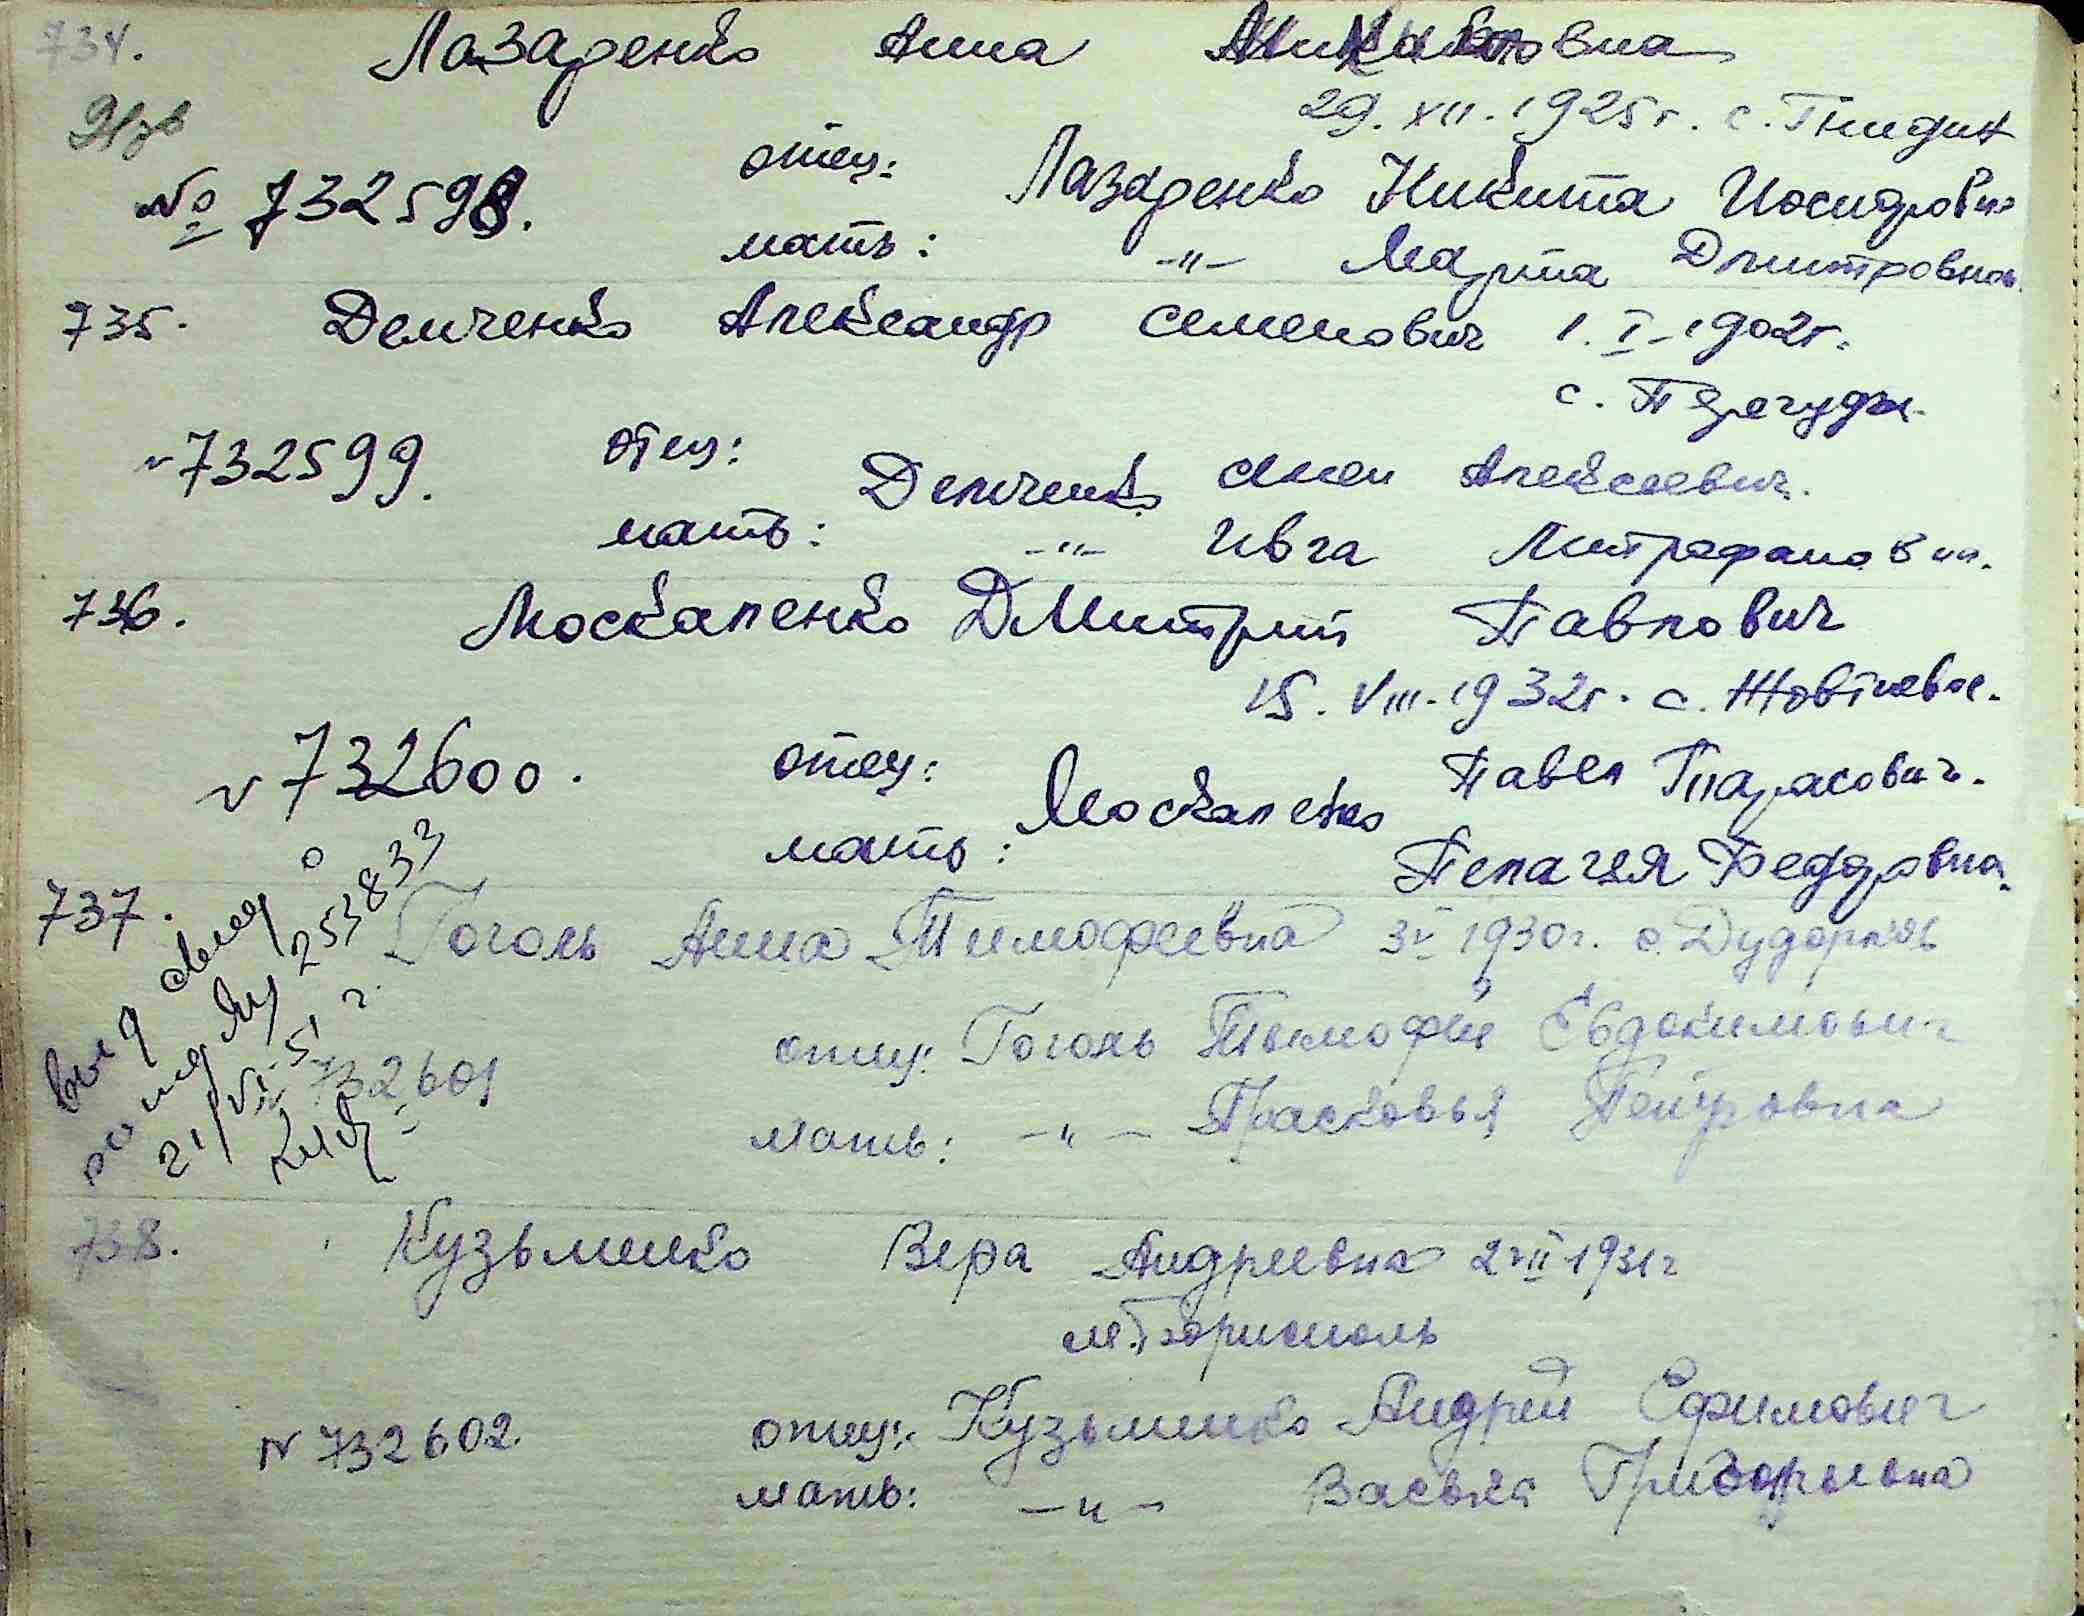 734. Лазаренко Анна Никитовна
29. XII. 1925г. с. Гнидин
№ 732598. отец: Лазаренко Никита Иосидрович
мать: -"- Марта Дмитровна
735. Демченко Александр Семенович 1. I-1902г.
с.
732599. отец: Демченко Алексеевич.
мать: -"- Ивга Митрофановн.
736. Москаленко Дмитрий Павлович
15. VIII. 1932г. с. Жовтневое.
732600. отец: Москаленко Павел Тарасович.
мать: Пелагея Федоровна.
737. Гоголь Анна Тимофеевна 3 V 1930г. с. Дударків
отец: Гоголь Тимофей Евдокимович
732601
мать: -"- Прасковья Петровна
253833
21/VI-51 г.
738. Кузьменко Вера Андреевна 2 II 1931г
м. Борисполь
N 732602. отец: Кузьменко Андрей Ефимович
мать: -"- Васька Григорьевна